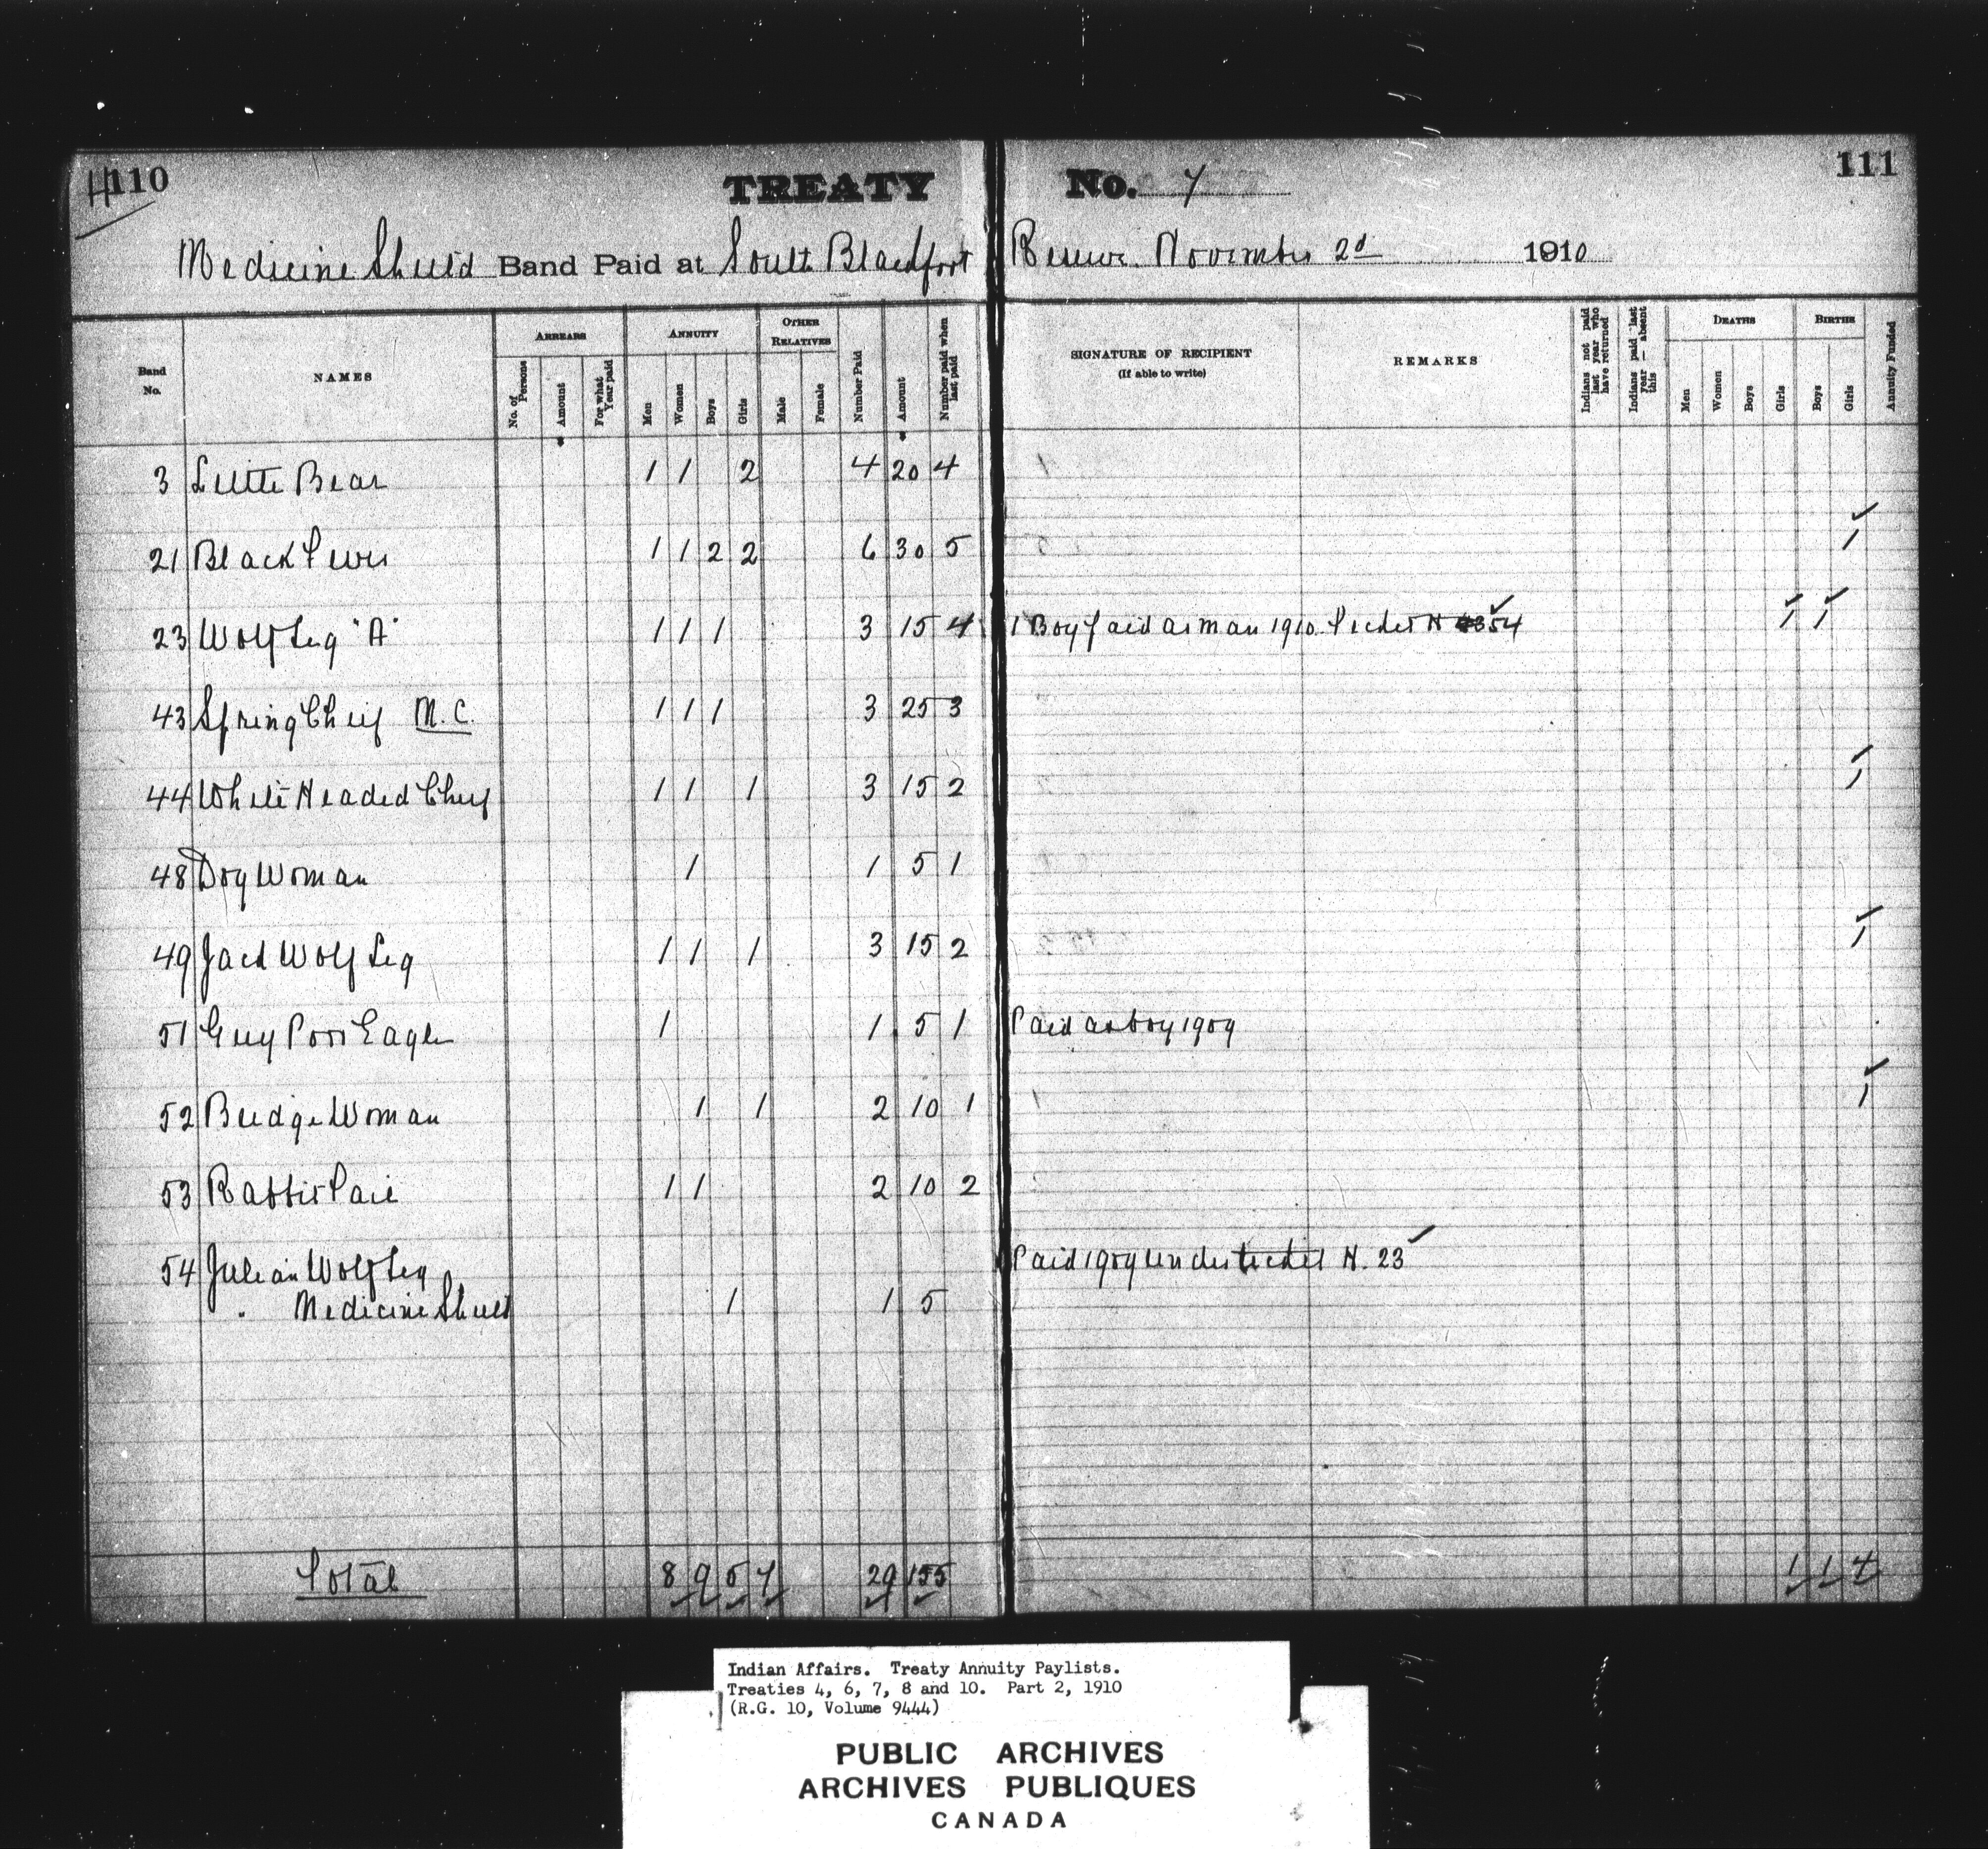 H 110 TREATY No. 7 111
Medicine Shield Band Paid at South Blackfoot Reserve November 2d 1910
Band No. NAMES ARREARS No. of Persons Amount For what Year paid ANNUITY Men Women Boys Girls OTHER RELATIVES Male Female Number Paid Amount Number paid when last paid SIGNATURE OF RECIPIENT (If able to write) REMARKS Indians not paid last year who have returned Indians paid last year — absent this DEATHS Men Women Boys Girls BIRTHS Boys Girls Annuity Funded
3 Little Bear 1 1 2 4 20 4
21 Black 1 1 2 2 6 30 5 1
23 Wolf Leg "A" 1 1 1 3 15 4 1 Boy paid as man 1910 Ticket H 54 1 1
43 Spring Chief M.C. 1 1 1 3 25 3
44 White Headed Chief 1 1 1 3 15 2 1
48 Dog Woman 1 1 5 1
49 Jack Wolf Leg 1 1 1 3 15 2 1
51 Guy Poor Eagle 1 1 5 1 Paid as boy 1909
52 Bridge Woman 1 1 2 10 1 1
53 Rabbit 1 1 2 10 2
54 Julian Wolf Leg Paid 1909 under ticket H. 23
" Medicine Shield 1 1 5
Total 8 9 5 7 29 155 1 1 4
Indian Affairs. Treaty Annuity Paylists.
Treaties 4, 6, 7, 8 and 10. Part 2, 1910
(R.G. 10, Volume 9444)
PUBLIC ARCHIVES
ARCHIVES PUBLIQUES
CANADA